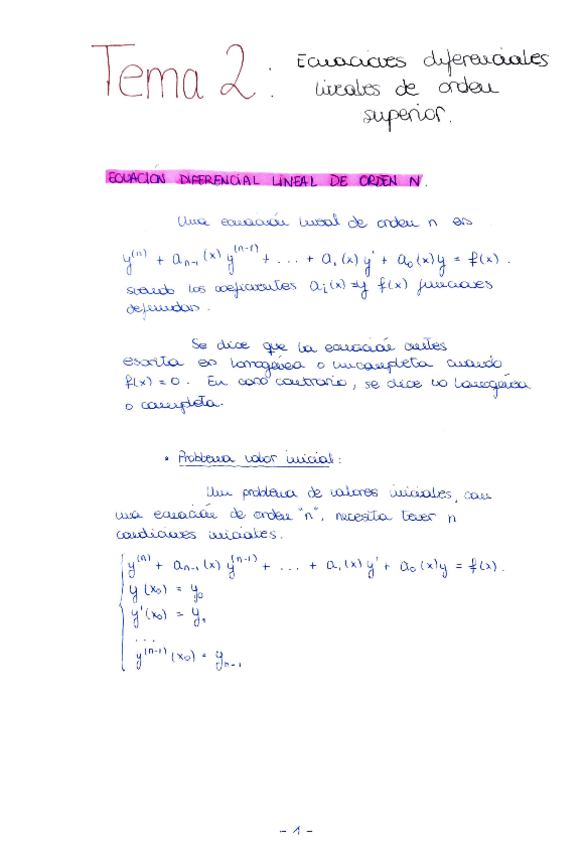 Tema 2: Ecuaciones diferenciales
lineales de orden
superior.
ECUACIÓN DIFERENCIAL LINEAL DE ORDEN N.
Una ecuación lineal de orden n es
y⁽ⁿ⁾ + aₙ₋₁(x) y⁽ⁿ⁻¹⁾ + ... + a₁(x) y' + a₀(x) y = f(x).
siendo los coeficientes aᵢ(x) y f(x) funciones
definidas.
Se dice que la ecuación antes
escrita es homogénea o incompleta cuando
f(x) = 0. En caso contrario, se dice no homogénea
o completa.
• Problema valor inicial:
Un problema de valores iniciales, con
una ecuación de orden "n", necesita tener n
condiciones iniciales.
y⁽ⁿ⁾ + aₙ₋₁(x) y⁽ⁿ⁻¹⁾ + ... + a₁(x) y' + a₀(x) y = f(x).
y(x₀) = y₀
y'(x₀) = y₁
...
y⁽ⁿ⁻¹⁾(x₀) = yₙ₋₁
- 1 -